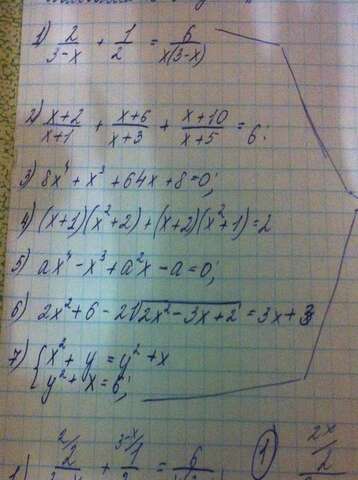 1) 2/(3-x) + 1/2 = 6/(x(3-x))
2) (x+2)/(x+1) + (x+6)/(x+3) + (x+10)/(x+5) = 6;
3) 8x⁴ + x³ + 64x + 8 = 0;
4) (x+1)(x²+2) + (x+2)(x²+1) = 2
5) ax⁴ - x³ + a²x - a = 0;
6) 2x² + 6 - 2√(2x² - 3x + 2) = 3x + 3
7) { x² + y = y² + x
y² + x = 6;